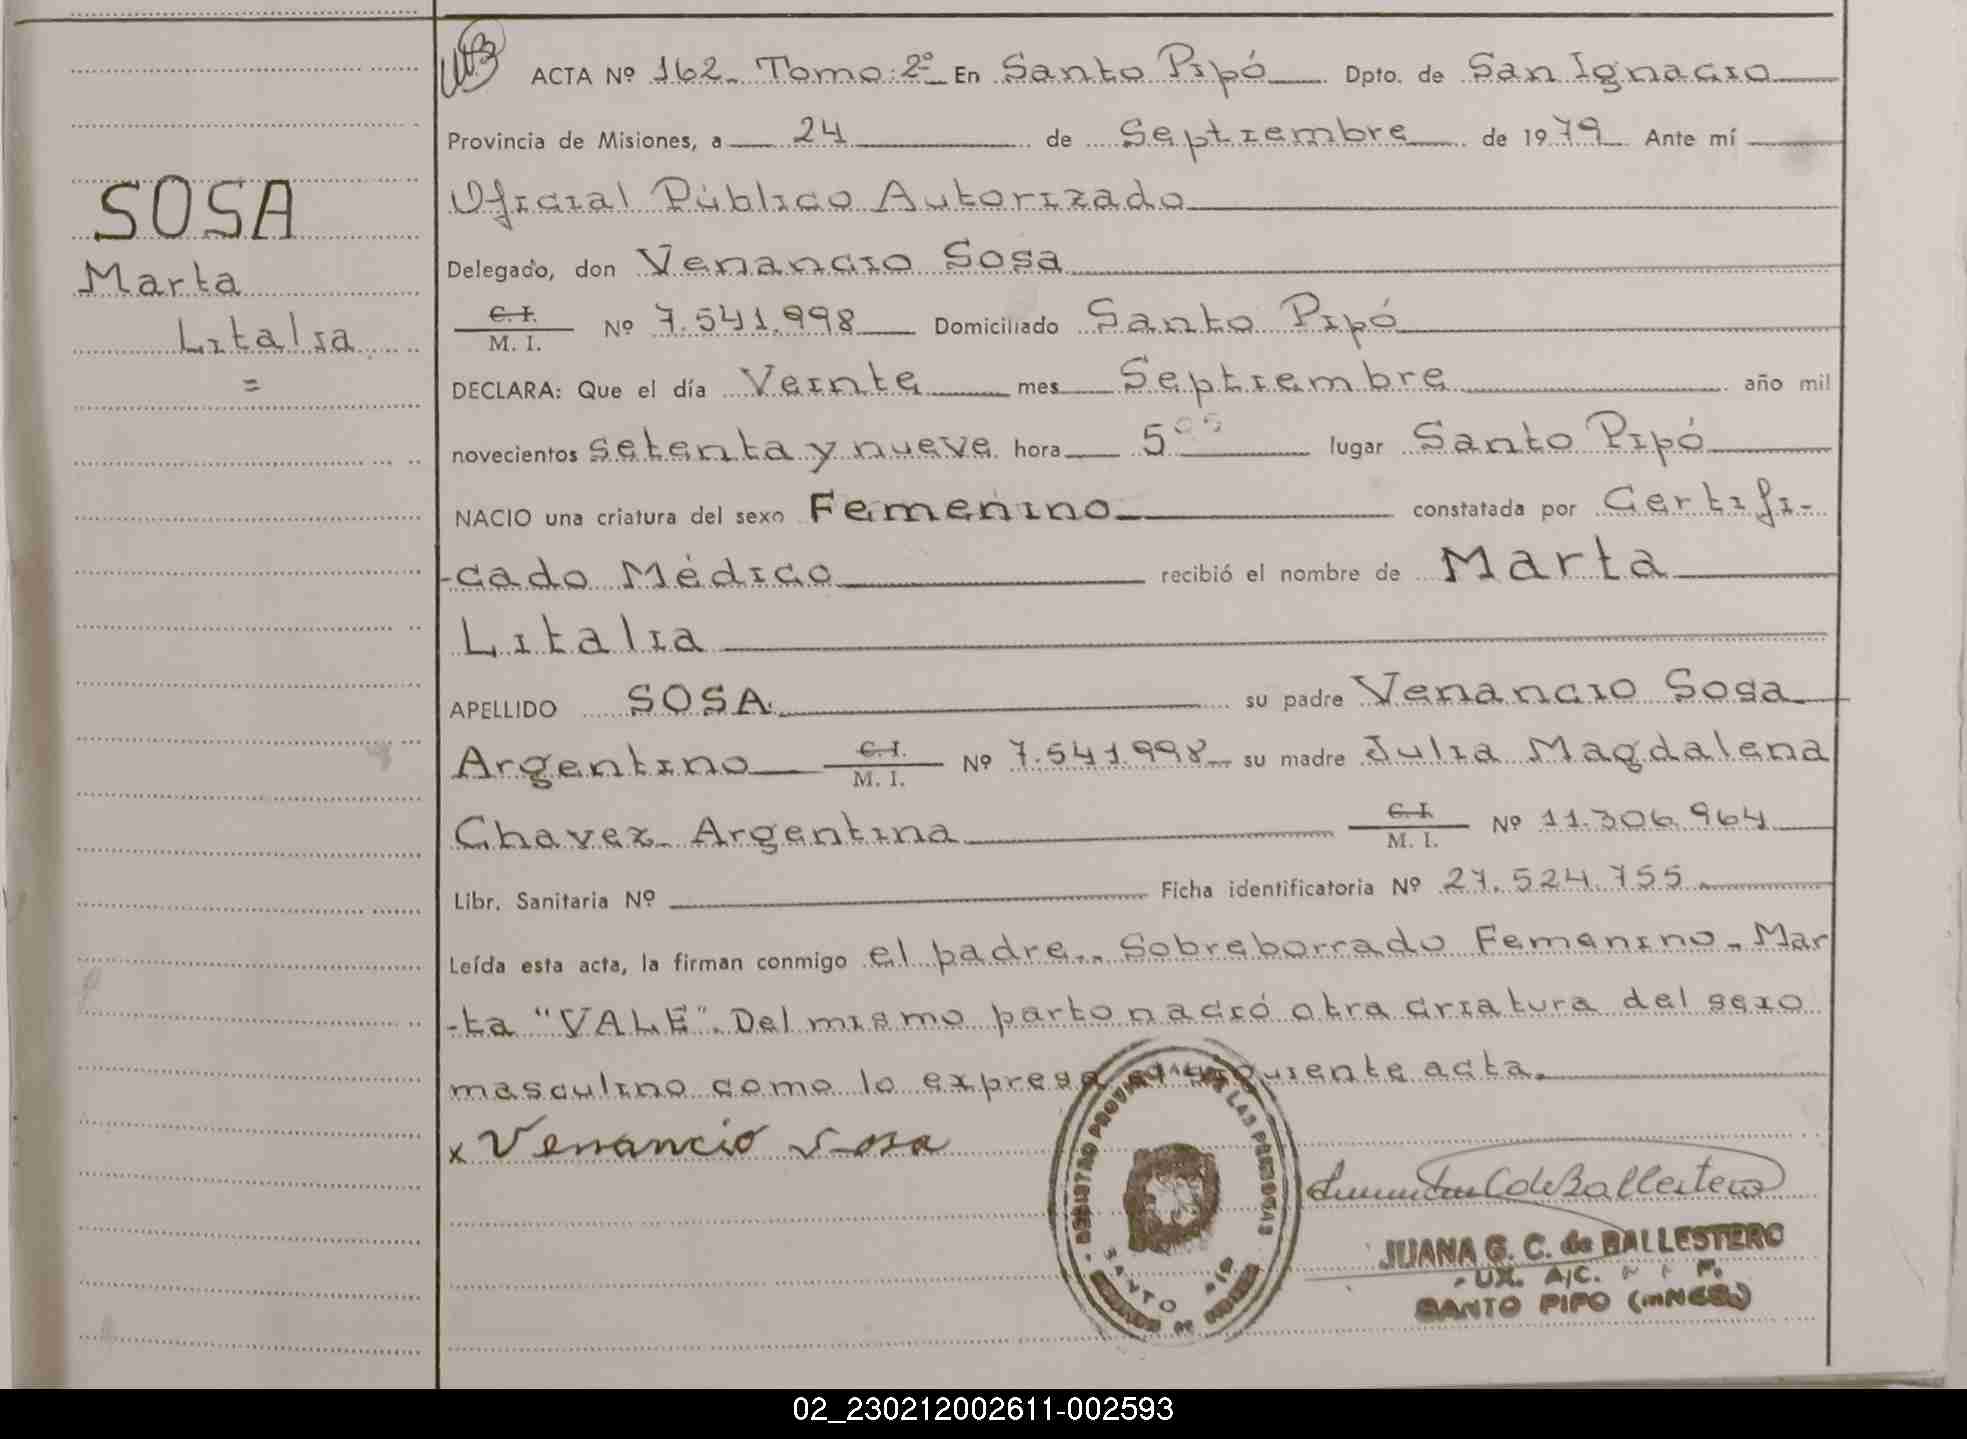 ACTA Nº 162. Tomo: 2º En Santo Pipó Dpto. de San Ignacio
Provincia de Misiones, a 24 de Septiembre de 1979 Ante mí
Oficial Público Autorizado
SOSA
Delegado, don Venancio Sosa
Marta
C. I.
M. I. Nº 7.541.998 Domiciliado Santo Pipó
Litalia
=
DECLARA: Que el día Veinte mes Septiembre año mil
novecientos setenta y nueve hora 5 lugar Santo Pipó
NACIO una criatura del sexo Femenino constatada por Certifi-
-cado Médico recibió el nombre de Marta
Litalia
APELLIDO SOSA su padre Venancio Sosa
Argentino C. I. M. I. Nº 7.541.998 su madre Julia Magdalena
Chavez. Argentina C. I. M. I. Nº 11.306.964
Libr. Sanitaria Nº Ficha identificatoria Nº 27.524.755
Leída esta acta, la firman conmigo el padre.. Sobreborrado Femenino. Mar
-ta "VALE". Del mismo parto nació otra criatura del sexo
masculino como lo expresa siguiente acta.
x Venancio Sosa
REGISTRO PROVINCIAL DE LAS PERSONAS
SANTO PIPO
C de Ballestero
JUANA G. C. de BALLESTERO
UX. A/C.
SANTO PIPO (MNES.)
02_230212002611-002593